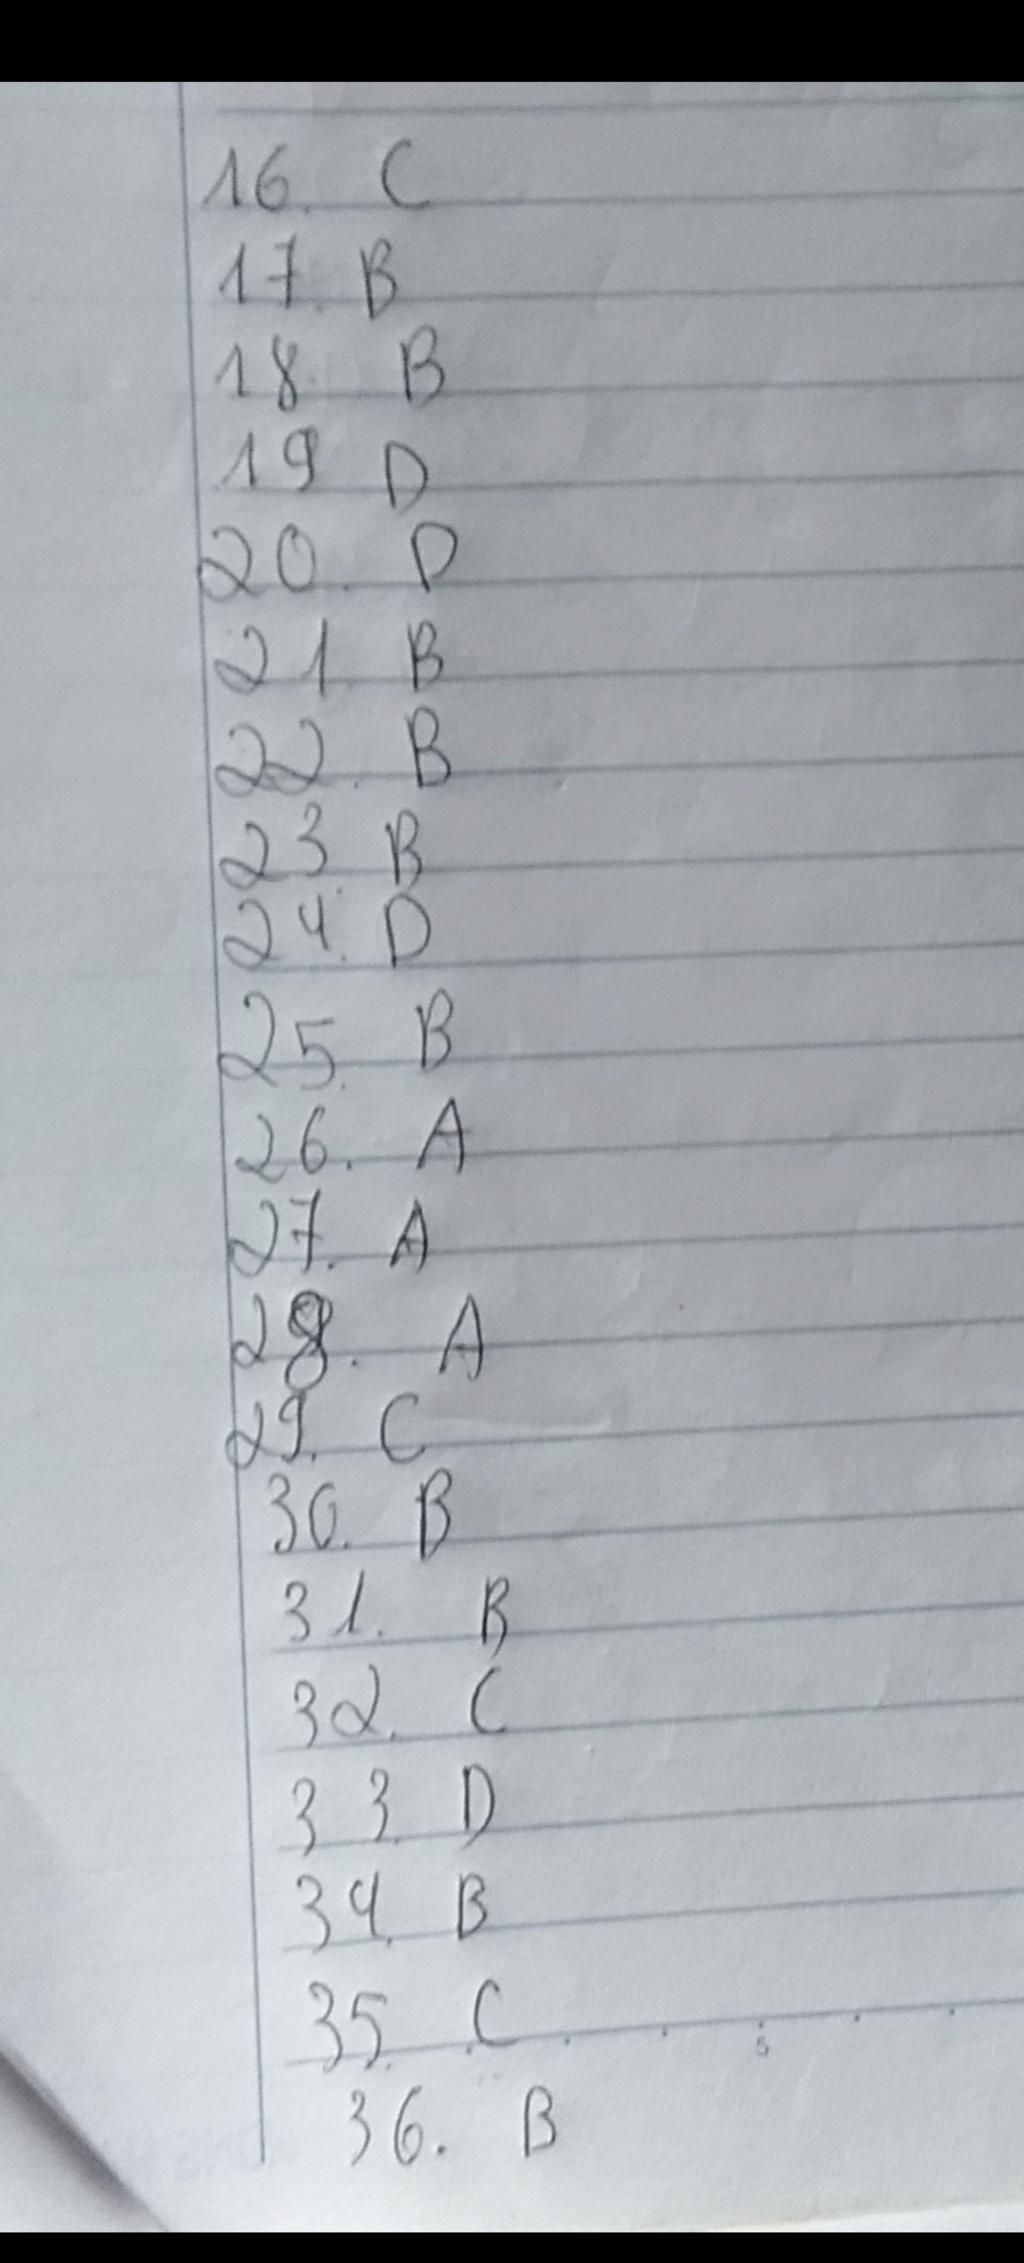 16. C
17. B
18. B
19 D
20. D
21. B
22. B
23 B
24. D
25. B
26. A
27. A
28. A
29. C
30. B
31. B
32. C
33. D
34. B
35. C
5
36. B